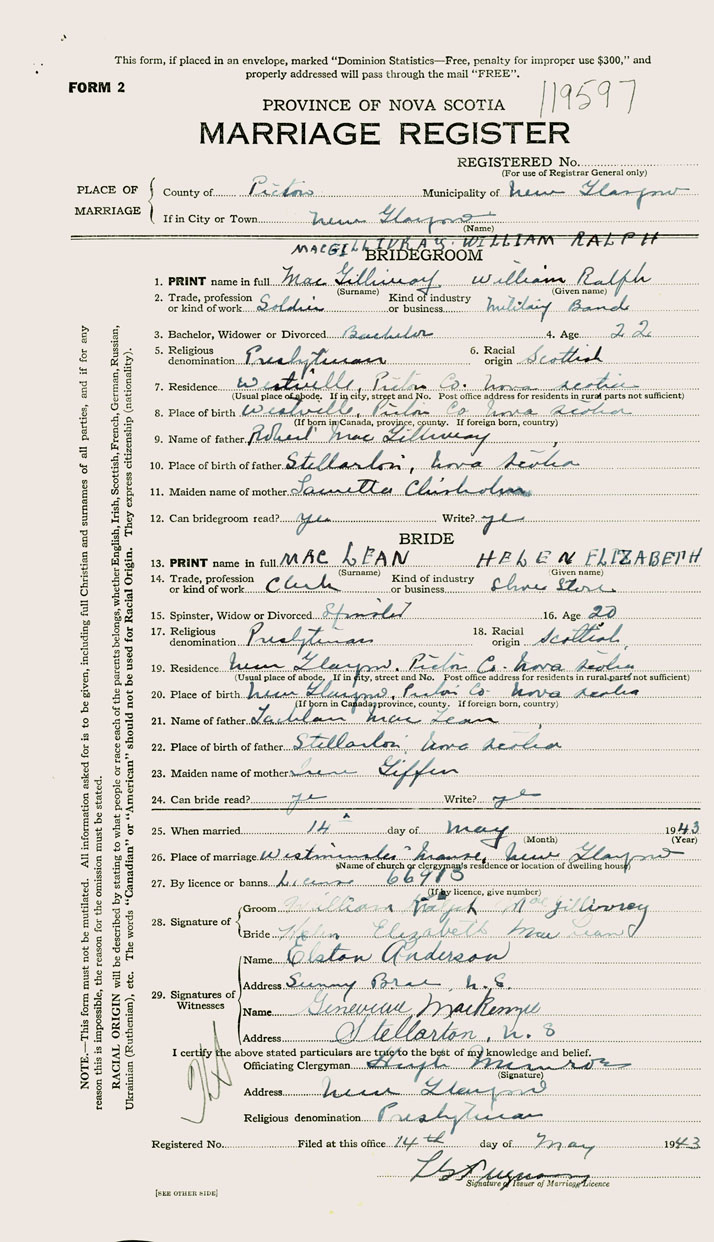 This form, if placed in an envelope, marked "Dominion Statistics—Free, penalty for improper use $300," and
properly addressed will pass through the mail "FREE".
FORM 2
119597
PROVINCE OF NOVA SCOTIA
MARRIAGE REGISTER
REGISTERED No.
(For use of Registrar General only)
PLACE OF MARRIAGE
County of Pictou Municipality of New Glasgow
If in City or Town New Glasgow
(Name)
MACGILLIVRAY. WILLIAM RALPH
BRIDEGROOM
1. PRINT name in full Mac Gillivray William Ralph
(Surname) (Given name)
2. Trade, profession or kind of work Soldier Kind of industry or business Military Band
3. Bachelor, Widower or Divorced Bachelor 4. Age 22
5. Religious denomination Presbyterian 6. Racial origin Scottish
7. Residence Westville, Pictou Co. Nova Scotia
(Usual place of abode. If in city, street and No. Post office address for residents in rural parts not sufficient)
8. Place of birth Westville, Pictou Co Nova Scotia
(If born in Canada, province, county. If foreign born, country)
9. Name of father Robert Mac Gillivray
10. Place of birth of father Stellarton, Nova Scotia
11. Maiden name of mother Lauretta Chisholm
12. Can bridegroom read? yes Write? yes
BRIDE
13. PRINT name in full MAC LEAN HELEN ELIZABETH
(Surname) (Given name)
14. Trade, profession or kind of work Clerk Kind of industry or business Shoe Store
15. Spinster, Widow or Divorced Spinster 16. Age 20
17. Religious denomination Presbyterian 18. Racial origin Scottish
19. Residence New Glasgow, Pictou Co. Nova Scotia
(Usual place of abode. If in city, street and No. Post office address for residents in rural parts not sufficient)
20. Place of birth New Glasgow, Pictou Co. Nova Scotia
(If born in Canada, province, county. If foreign born, country)
21. Name of father Lachlan Mac Lean
22. Place of birth of father Stellarton, Nova Scotia
23. Maiden name of mother Irene Giffin
24. Can bride read? yes Write? yes
25. When married 14th day of May 1943
(Month) (Year)
26. Place of marriage Westminster Manse, New Glasgow
(Name of church or clergyman's residence or location of dwelling house)
27. By licence or banns License 66913
(If by licence, give number)
28. Signature of
Groom William Ralph MacGillivray
Bride Helen Elizabeth MacLean
29. Signatures of Witnesses
Name Elston Anderson
Address Sunny Brae, N.S.
Name Genevieve MacKenzie
Address Stellarton, N.S
I certify the above stated particulars are true to the best of my knowledge and belief.
Officiating Clergyman Hugh Munroe
(Signature)
Address New Glasgow
Religious denomination Presbyterian
Registered No. Filed at this office 14th day of May 1943
Signature of Issuer of Marriage Licence
[SEE OTHER SIDE]
NOTE.—This form must not be mutilated. All information asked for is to be given, including full Christian and surnames of all parties, and if for any
reason this is impossible, the reason for the omission must be stated.
RACIAL ORIGIN will be described by stating to what people or race each of the parents belongs, whether English, Irish, Scottish, French, German, Russian,
Ukrainian (Ruthenian), etc. The words "Canadian" or "American" should not be used for Racial Origin. They express citizenship (nationality).